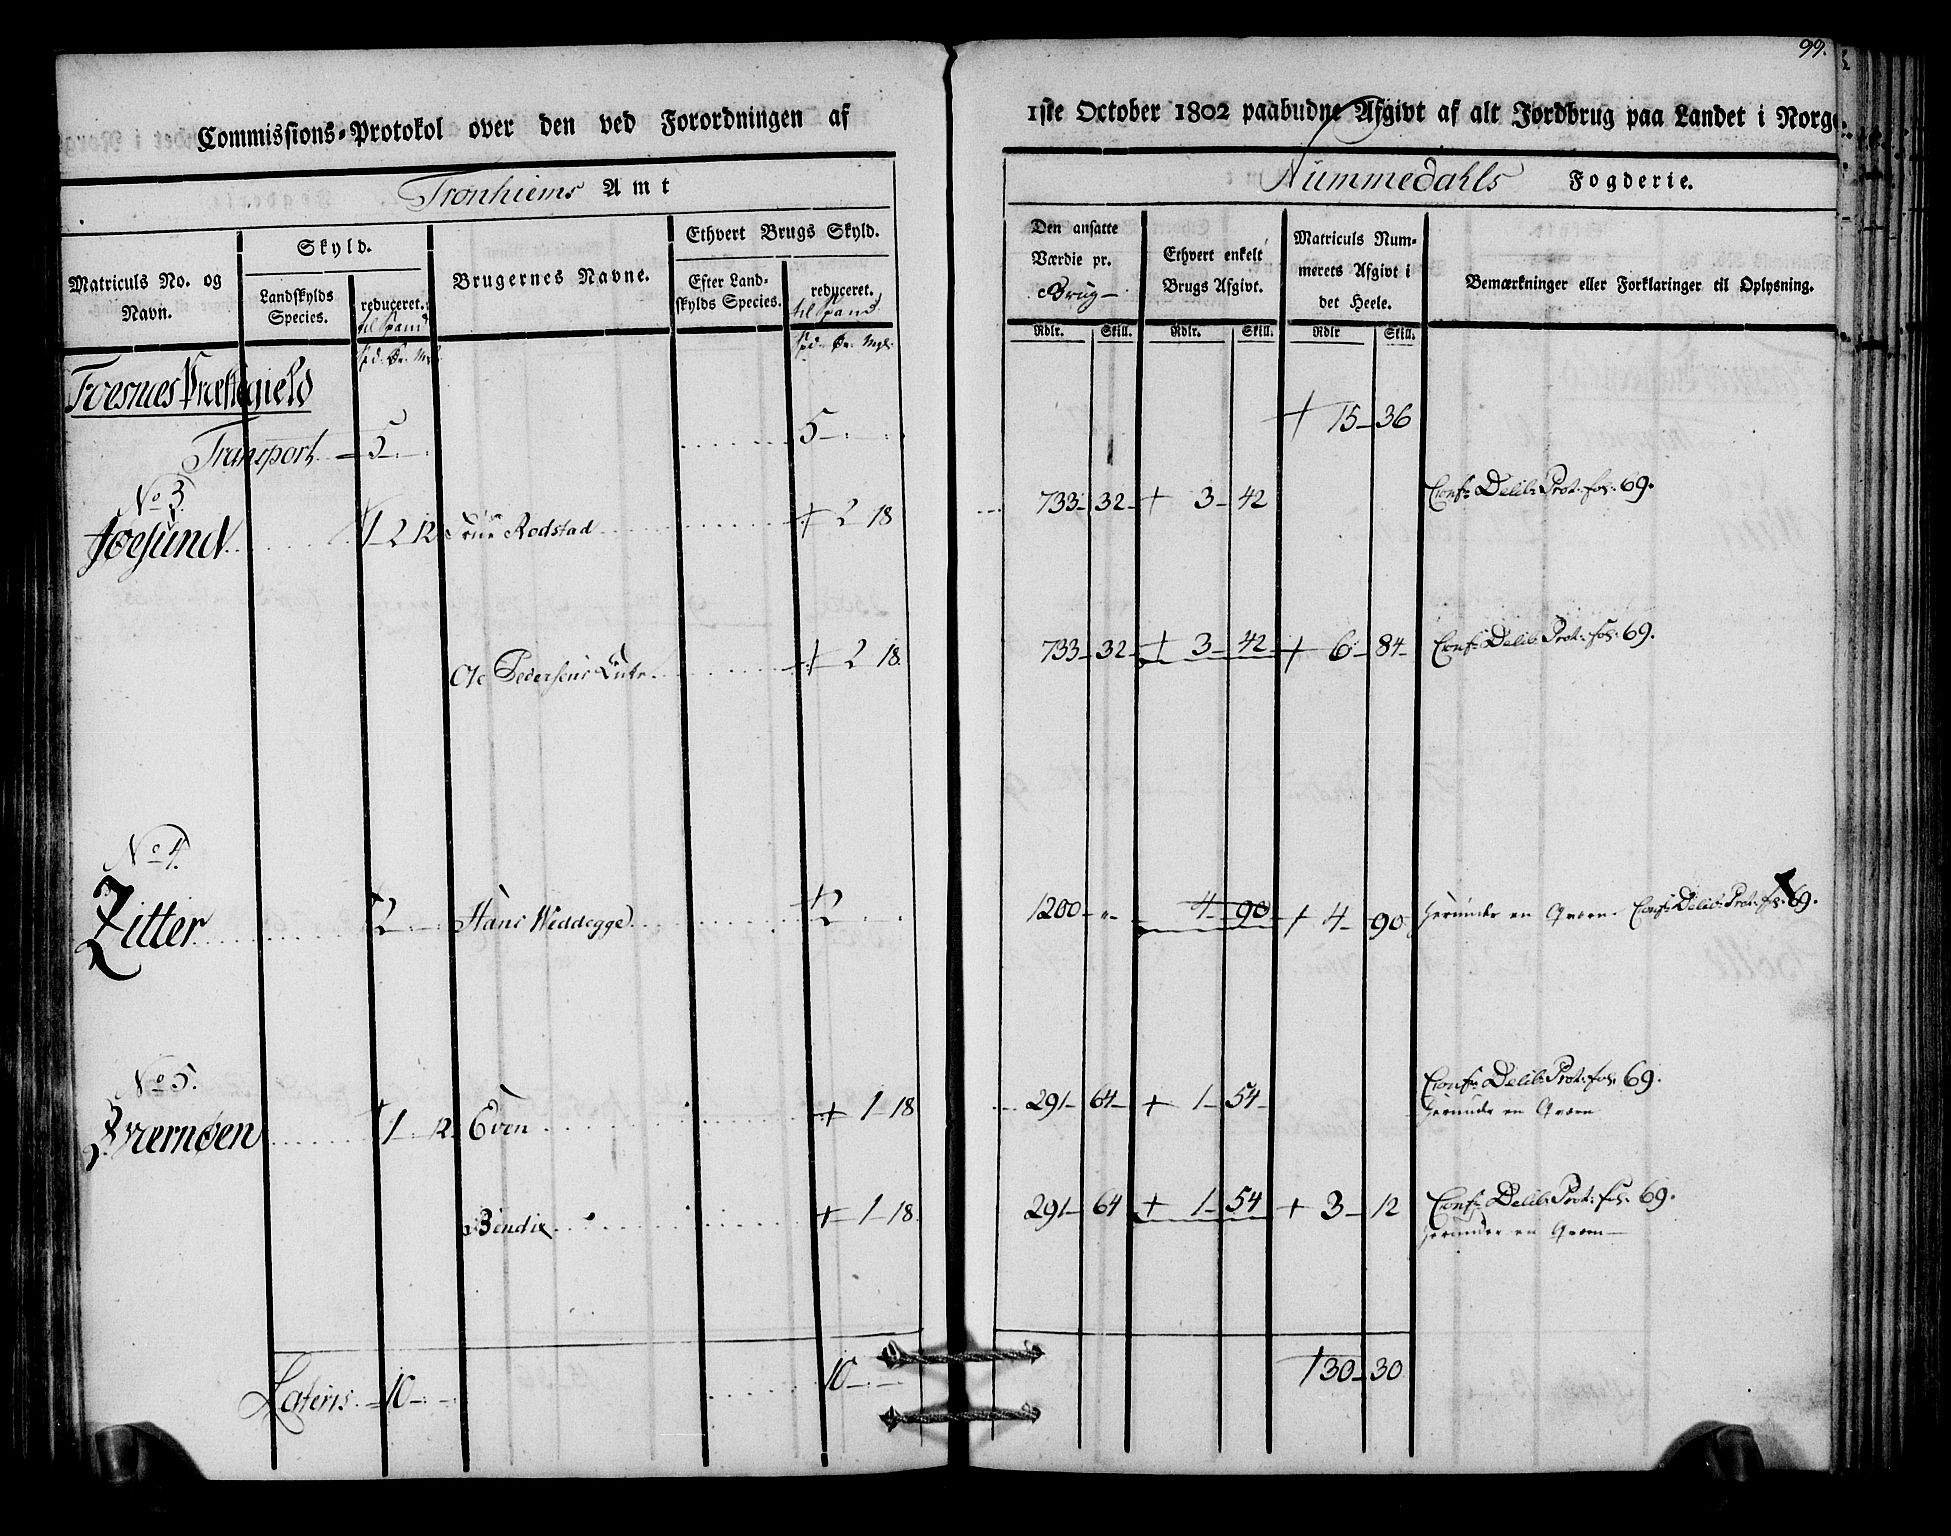 99.
Commissions-Protokol over den ved Forordningen af 1ste October 1802 paabudne Afgivt af alt Jordbrug paa Landet i Norge.
Tronhiems Amt Nummedahls Fogderie.
Matriculs No. og Navn. Skyld. Landskylds Species. reduceret. til Spand Brugernes Navne. Ethvert Brugs Skyld. Efter Landskylds Species. reduceret. til Spand
Den ansatte Værdie pr. Brug Ethvert enkelt Brugs Afgivt. Matriculs Nummerets Afgivt i det Heele. Bemærkninger eller Forklaringer til Oplysning.
Spd. Ør. Mgl. Spd. Ør. Mgl. Rdlr. Skill. Rdlr. Skill. Rdlr Skill.
Foesnes Præstegield
Transport 5 5 15 36
No 3.
Joesund 1 2 12 Rodstad 2 18 733 32 3 42 Conf: Delib: Prot: fol: 69.
Ole Pedersens Enke 2 18 733 32 3 42 6 84 Conf: Delib: Prot: fol: 69.
No 4.
Zitter 2 Hans Weddegge 2 1200 " 4 90 4 90 herunder en Qværn. Conf: Delib: Prot: fol: 69.
No 5.
1 12 Even 1 18 291 64 1 54 Conf: Delib: Prot: fol: 69.
herunder en Qværn
Bendix 1 18 291 64 1 54 3 12 Conf: Delib: Prot: fol: 69.
herunder en Qværn
Lateris 10 10 30 30